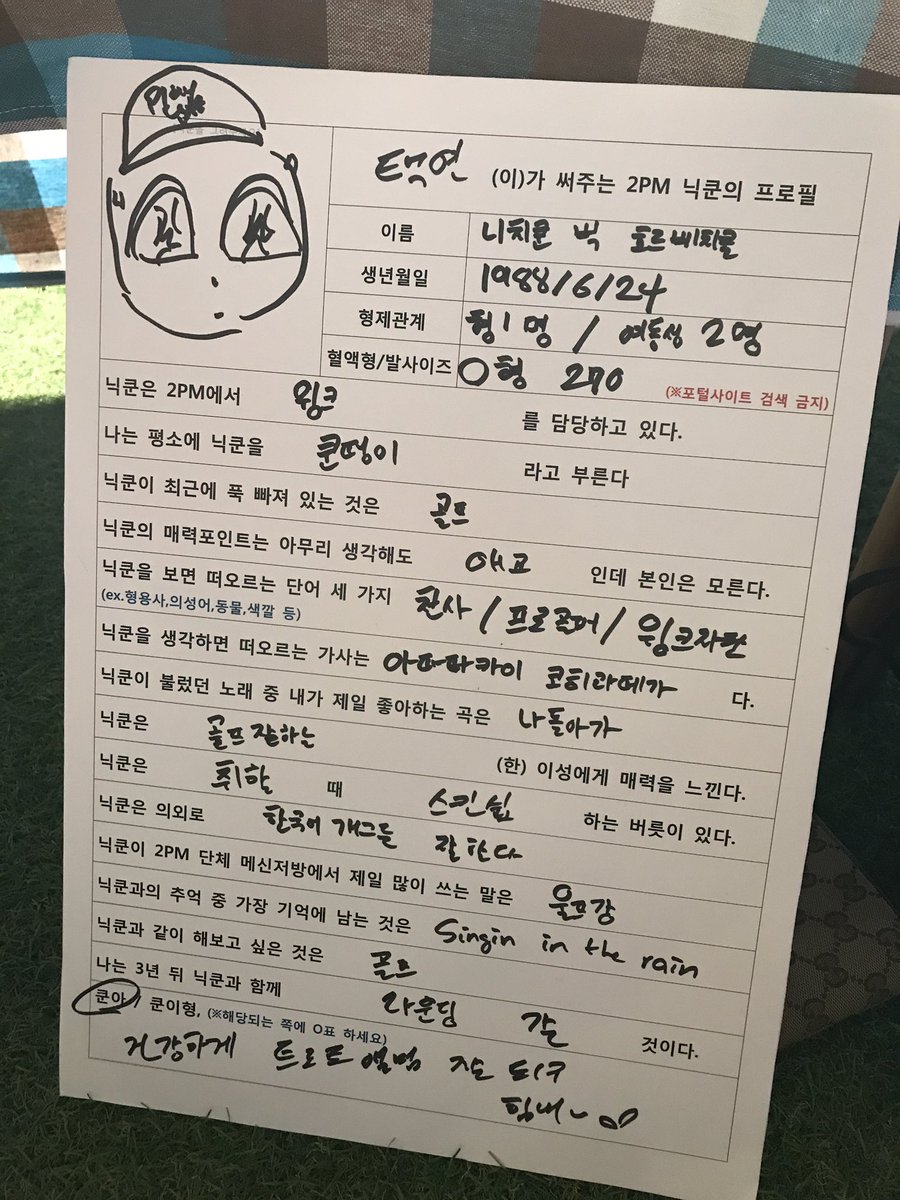 택연 (이)가 써주는 2PM 닉쿤의 프로필
이름 니치쿤 벅 호르베치쿨
생년월일 1988/6/24
형제관계 형1명 / 여동생 2명
혈액형/발사이즈 O형 270 (※포털사이트 검색 금지)
닉쿤은 2PM에서 윙크 를 담당하고 있다.
나는 평소에 닉쿤을 쿤떵이 라고 부른다
닉쿤이 최근에 푹 빠져 있는 것은 골프
닉쿤의 매력포인트는 아무리 생각해도 애교 인데 본인은 모른다.
닉쿤을 보면 떠오르는 단어 세 가지 천사 / 프로골퍼 / 윙크자판
(ex.형용사,의성어,동물,색깔 등)
닉쿤을 생각하면 떠오르는 가사는 아파파카이 코티라떼가 다.
닉쿤이 불렀던 노래 중 내가 제일 좋아하는 곡은 나돌아가
닉쿤은 골프 잘하는 (한) 이성에게 매력을 느낀다.
닉쿤은 취할 때 스킨쉽 하는 버릇이 있다.
닉쿤은 의외로 한국어 개그를 잘 한다
닉쿤이 2PM 단체 메신저방에서 제일 많이 쓰는 말은 울프강
닉쿤과의 추억 중 가장 기억에 남는 것은 Singin in the rain
닉쿤과 같이 해보고 싶은 것은 골프
나는 3년 뒤 닉쿤과 함께 라운딩 갈 것이다.
쿤아 / 쿤이형, (※해당되는 쪽에 O표 하세요)
건강하게 트로트앨범
힘내~